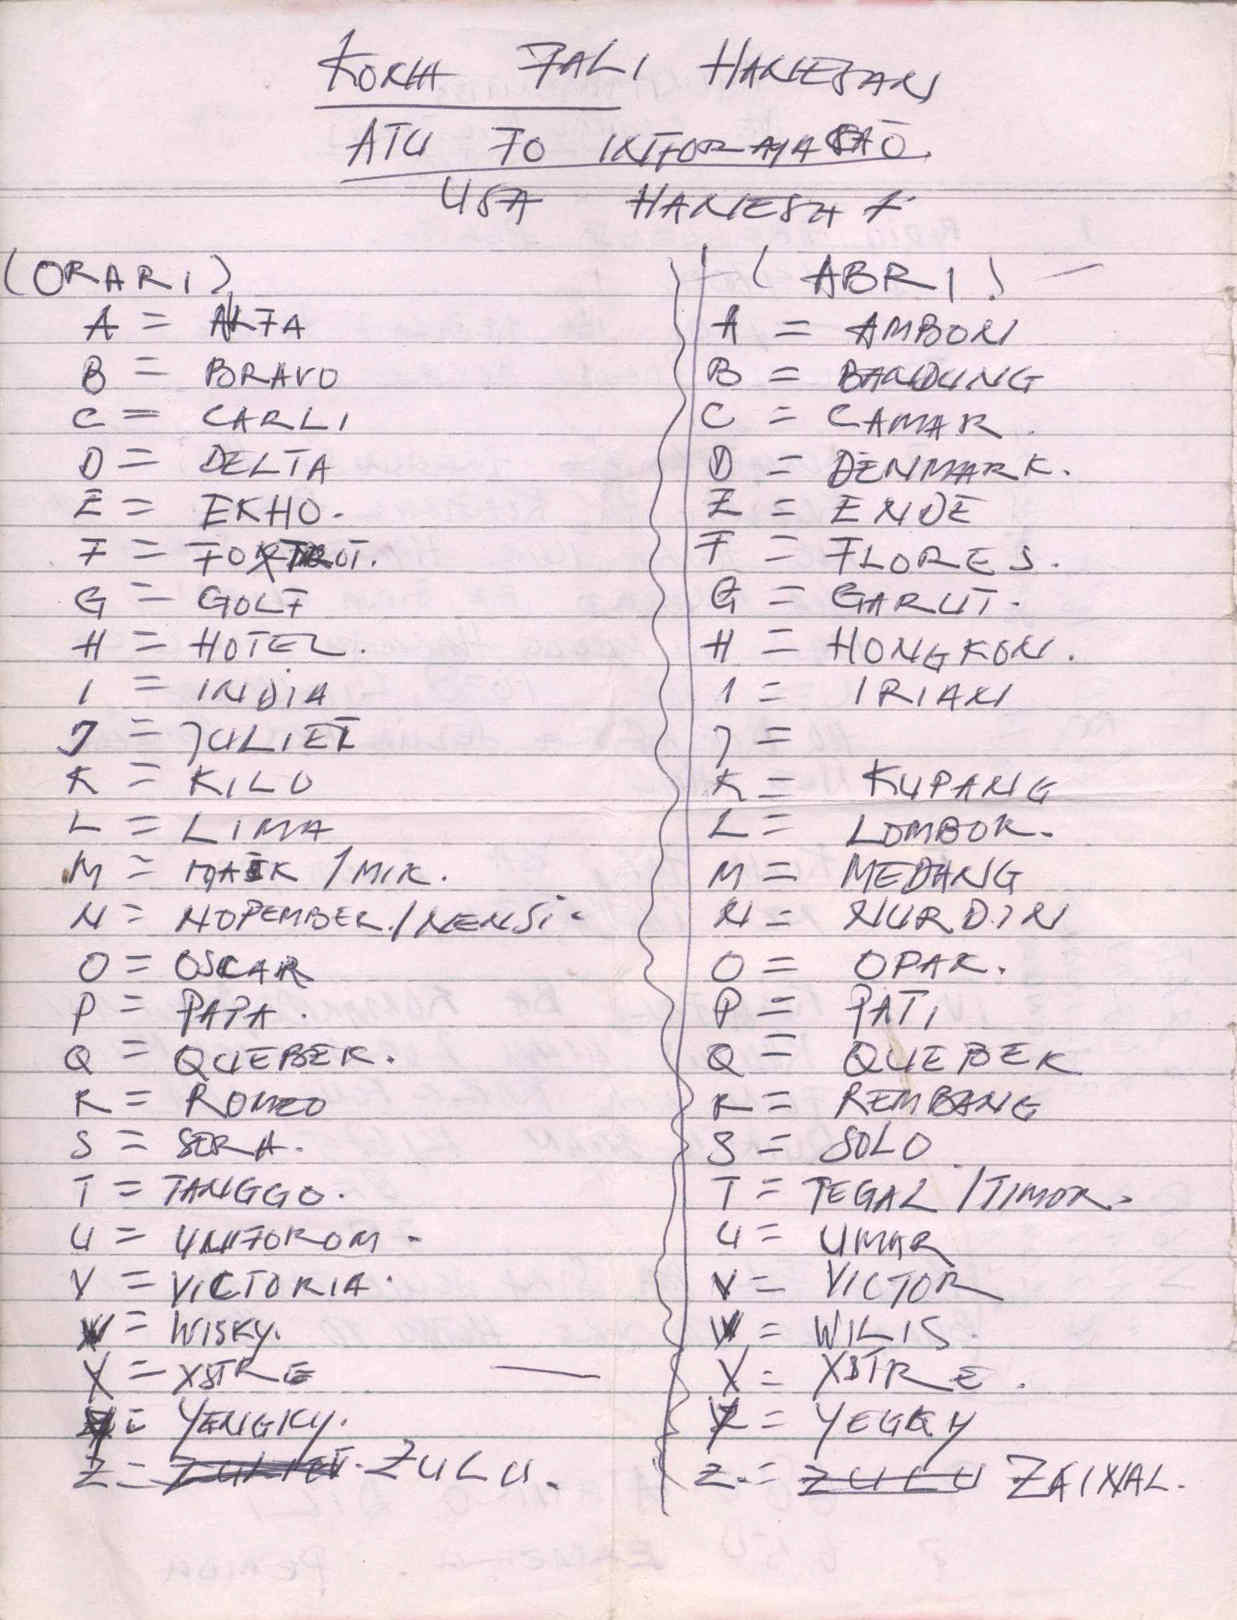 KORIA FALI HANESAN
ATU FO INFORMASAÕ
USA HANESA F
(ORARI)
A = ALFA
B = BRAVO
C = CARLI
D = DELTA
E = EKHO.
F = FOXTROT.
G = GOLF
H = HOTEL.
I = INDIA
J = JULIET
K = KILO
L = LIMA
M = MAIK / MIK.
N = NOPEMBER./NENSi.
O = OSCAR
P = PAPA.
Q = QUEBEK.
R = ROMEO
S = SERA.
T = TANGGO.
U = UNIFOROM.
V = VICTORIA.
W = WISKY.
X = XSTRE
Y = YENGKY.
Z = ZULU.
(ABRI)
A = AMBON
B = BANDUNG
C = CAMAR.
D = DENMARK.
E = ENDE
F = FLORES.
G = GARUT.
H = HONGKON.
I = IRIAN
J =
K = KUPANG
L = LOMBOK.
M = MEDANG
N = NURDIN
O = OPAK.
P = PATI
Q = QUEBEK
R = REMBANG
S = SOLO
T = TEGAL / TIMOR.
U = UMAR
V = VICTOR
W = WILIS.
X = XSTRE.
Y = YEGKY
Z. = ZULU ZAINAL.